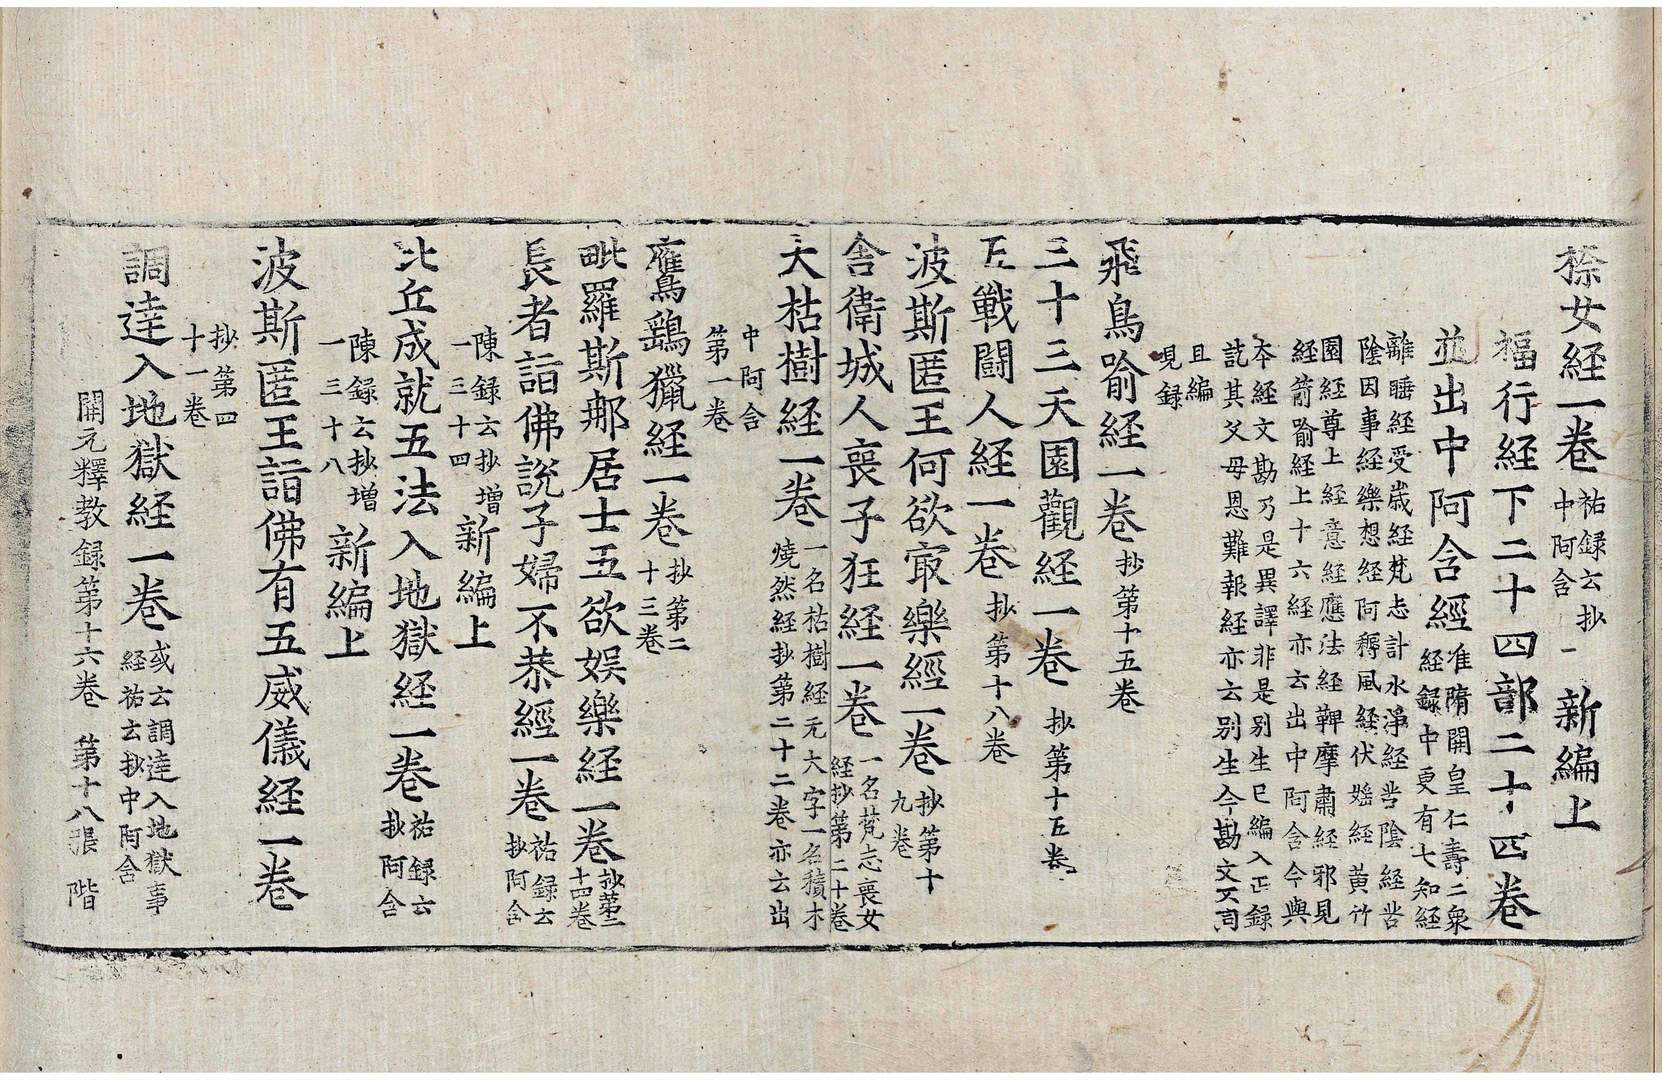 㮈女経一巻 祐録云抄中阿含 一 新編上
福行経下二十四部二十四巻
並出中阿含經 准隋開皇仁壽二衆経録中更有七知経
離睡経受歳経梵志計水淨経苦陰経苦
陰因事経樂想経阿耨風経伏婬経黄竹
園経尊上経意経應法経鞞摩肅経邪見
経箭喻経上十六経亦云出中阿含今與
夲経文勘乃是異譯非是别生已編入正録
訖其父母恩難報経亦云别生今勘文不同
且編
見録
飛鳥喻経一巻 抄第十五巻
三十三天園觀経一巻 抄第十五巻
五戰鬪人経一巻 抄第十八巻
波斯匿王何欲㝡樂經一巻 抄第十九巻
舍衛城人喪子狂経一巻 一名梵志喪女経抄第二十巻
大枯樹経一巻 一名枯樹経元大字一名積木燒然経抄第二十二巻亦云出
中阿含
第一巻
鷹鷂獵経一巻 抄第二十三巻
毗羅斯那居士五欲娯樂経一巻 抄第二十四巻
長者詣佛說子婦不恭經一巻 祐録云抄阿含
陳録云抄増一三十四 新編上
比丘成就五法入地獄経一巻 祐録云抄阿含
陳録云抄増一三十八 新編上
波斯匿王詣佛有五威儀経一巻
抄第四
十一巻
調達入地獄経一巻 或云調達入地獄事経祐云抄中阿含
開元釋教録第十六巻 第十八張 階